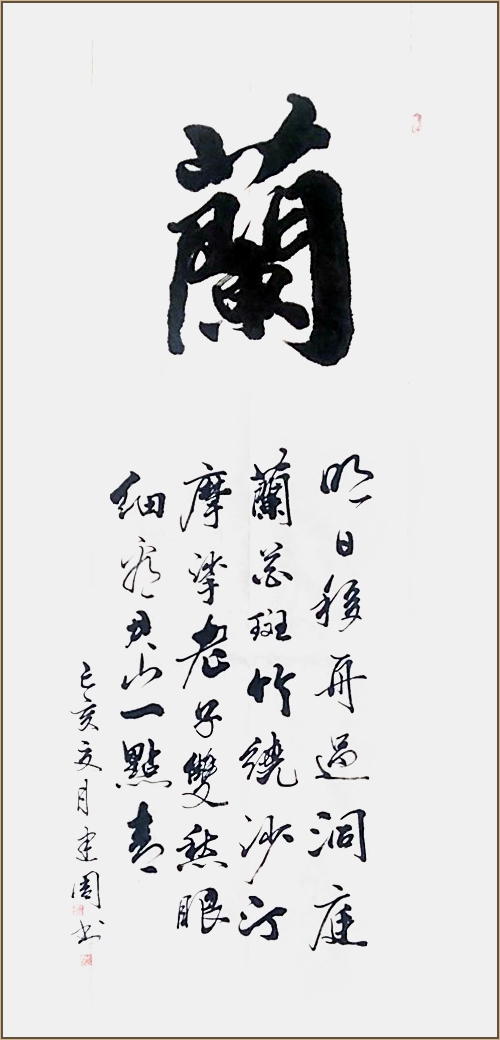 蘭
明日移舟過洞庭
蘭花斑竹繞沙汀
摩挲老子雙愁眼
細看君山一點青
己亥文月建周书